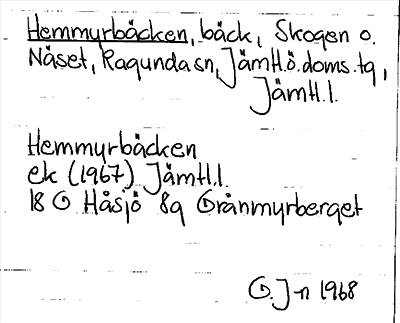 Hemmyrbäcken, bäck, Skogen o.
Näset, Ragunda sn, Jämtl.ö.doms.tg,
Jämtl.l.
Hemmyrbäcken
ek (1967) Jämtl.l.
18 G Håsjö 8g Granmyrberget
G. J-n 1968